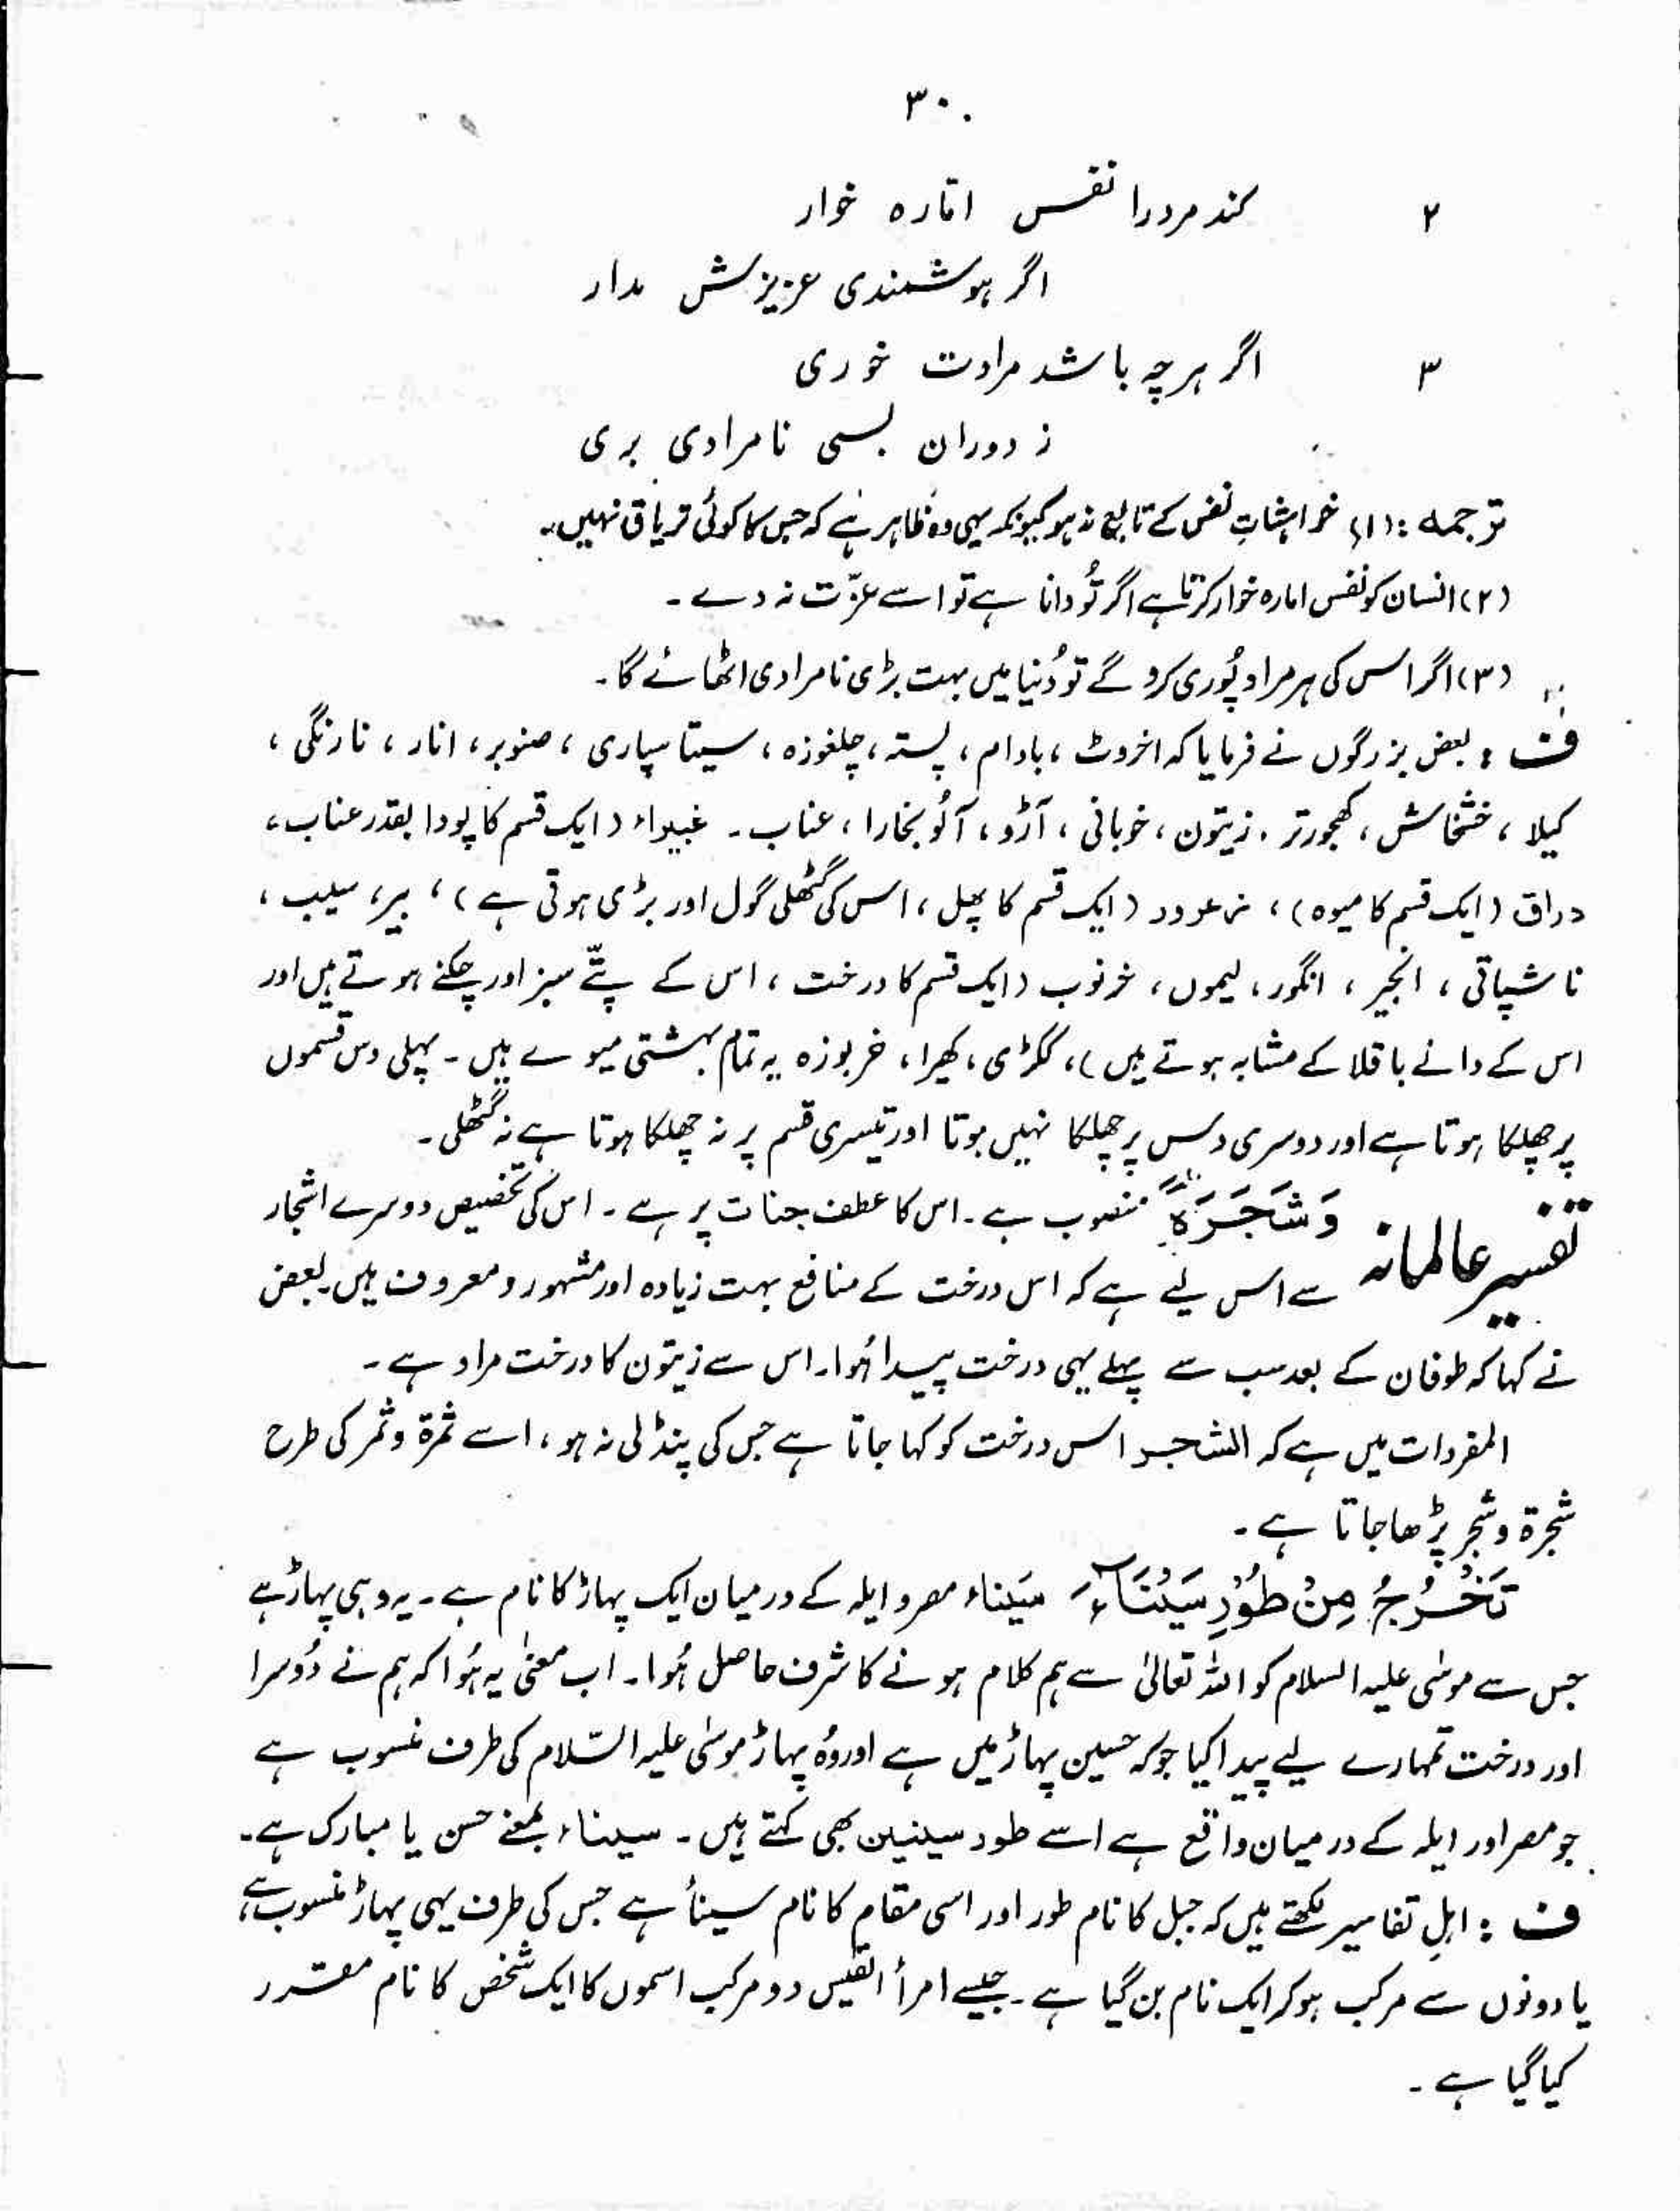 ۳۰
۲ کند مرد را نفس امّاره خوار
اگر ہوشمندی عزیزش مدار
۳ اگر ہر چہ باشد مرادت خوری
ز دوران بسی نامرادی بری
ترجمہ : (۱) خواہشاتِ نفس کے تابع نہ ہو کیونکہ یہی وہ ظاہر ہے کہ جس کا کوئی تریاق نہیں۔
(۲) انسان کو نفس امارہ خوار کرتا ہے اگر تُو دانا ہے تو اسے عزّت نہ دے ۔
(۳) اگر اس کی ہر مراد پُوری کرو گے تو دُنیا میں بہت بڑی نامرادی اٹھائے گا۔
ف : بعض بزرگوں نے فرمایا کہ اخروٹ ، بادام ، پستہ ، چلغوزہ ، سیتا سپاری ، صنوبر ، انار ، نارنگی ،
کیلا ، خشخاش ، کھجورتر ، زیتون ، خوبانی ، آڑو ، آلُو بخارا ، عناب ۔ غبیراء (ایک قسم کا پودا بقدر عناب ،
دراق (ایک قسم کا میوہ) ، زعرور (ایک قسم کا پھل ، اس کی گٹھلی گول اور بڑی ہوتی ہے) ، بیر ، سیب ،
ناشپاتی ، انجیر ، انگور ، لیموں ، خرنوب (ایک قسم کا درخت ، اس کے پتّے سبز اور چکنے ہوتے ہیں اور
اس کے دانے باقلا کے مشابہ ہوتے ہیں) ، ککڑی ، کھیرا ، خربوزہ یہ تمام بہشتی میوے ہیں ۔ پہلی دس قسموں
پر چھلکا ہوتا ہے اور دوسری دس پر چھلکا نہیں ہوتا اور تیسری قسم پر نہ چھلکا ہوتا ہے نہ گٹھلی ۔
تفسیر عالمانہ وَشَجَرَةً منصوب ہے ۔ اس کا عطف جنات پر ہے ۔ اس کی تخصیص دوسرے اشجار
سے اس لیے ہے کہ اس درخت کے منافع بہت زیادہ اور مشہور و معروف ہیں ۔ بعض
نے کہا کہ طوفان کے بعد سب سے پہلے یہی درخت پیدا ہُوا۔ اس سے زیتون کا درخت مراد ہے ۔
المفردات میں ہے کہ الشجر اس درخت کو کہا جاتا ہے جس کی پنڈلی نہ ہو ، اسے ثمرۃ و ثمر کی طرح
شجرۃ و شجر پڑھا جاتا ہے ۔
تَخْرُجُ مِنْ طُوْرِ سَيْنَآءَ سَیناء مصر و ایلہ کے درمیان ایک پہاڑ کا نام ہے ۔ یہ وہی پہاڑ ہے
جس سے موسٰی علیہ السلام کو اللہ تعالیٰ سے ہم کلام ہونے کا شرف حاصل ہُوا ۔ اب معنیٰ یہ ہُوا کہ ہم نے دُوسرا
اور درخت تمہارے لیے پیدا کیا جو کہ حسین پہاڑ میں ہے اور وُہ پہاڑ موسٰی علیہ السّلام کی طرف منسوب ہے
جو مصر اور ایلہ کے درمیان واقع ہے اسے طور سینین بھی کہتے ہیں ۔ سیناء بمعنے حسن یا مبارک ہے۔
ف : اہلِ تفاسیر لکھتے ہیں کہ جبل کا نام طور اور اسی مقام کا نام سینأ ہے جس کی طرف یہی پہاڑ منسوب ہے ،
یا دونوں سے مرکب ہو کر ایک نام بن گیا ہے ۔ جیسے امرأ القیس دو مرکب اسموں کا ایک شخص کا نام مقرر
کیا گیا ہے ۔